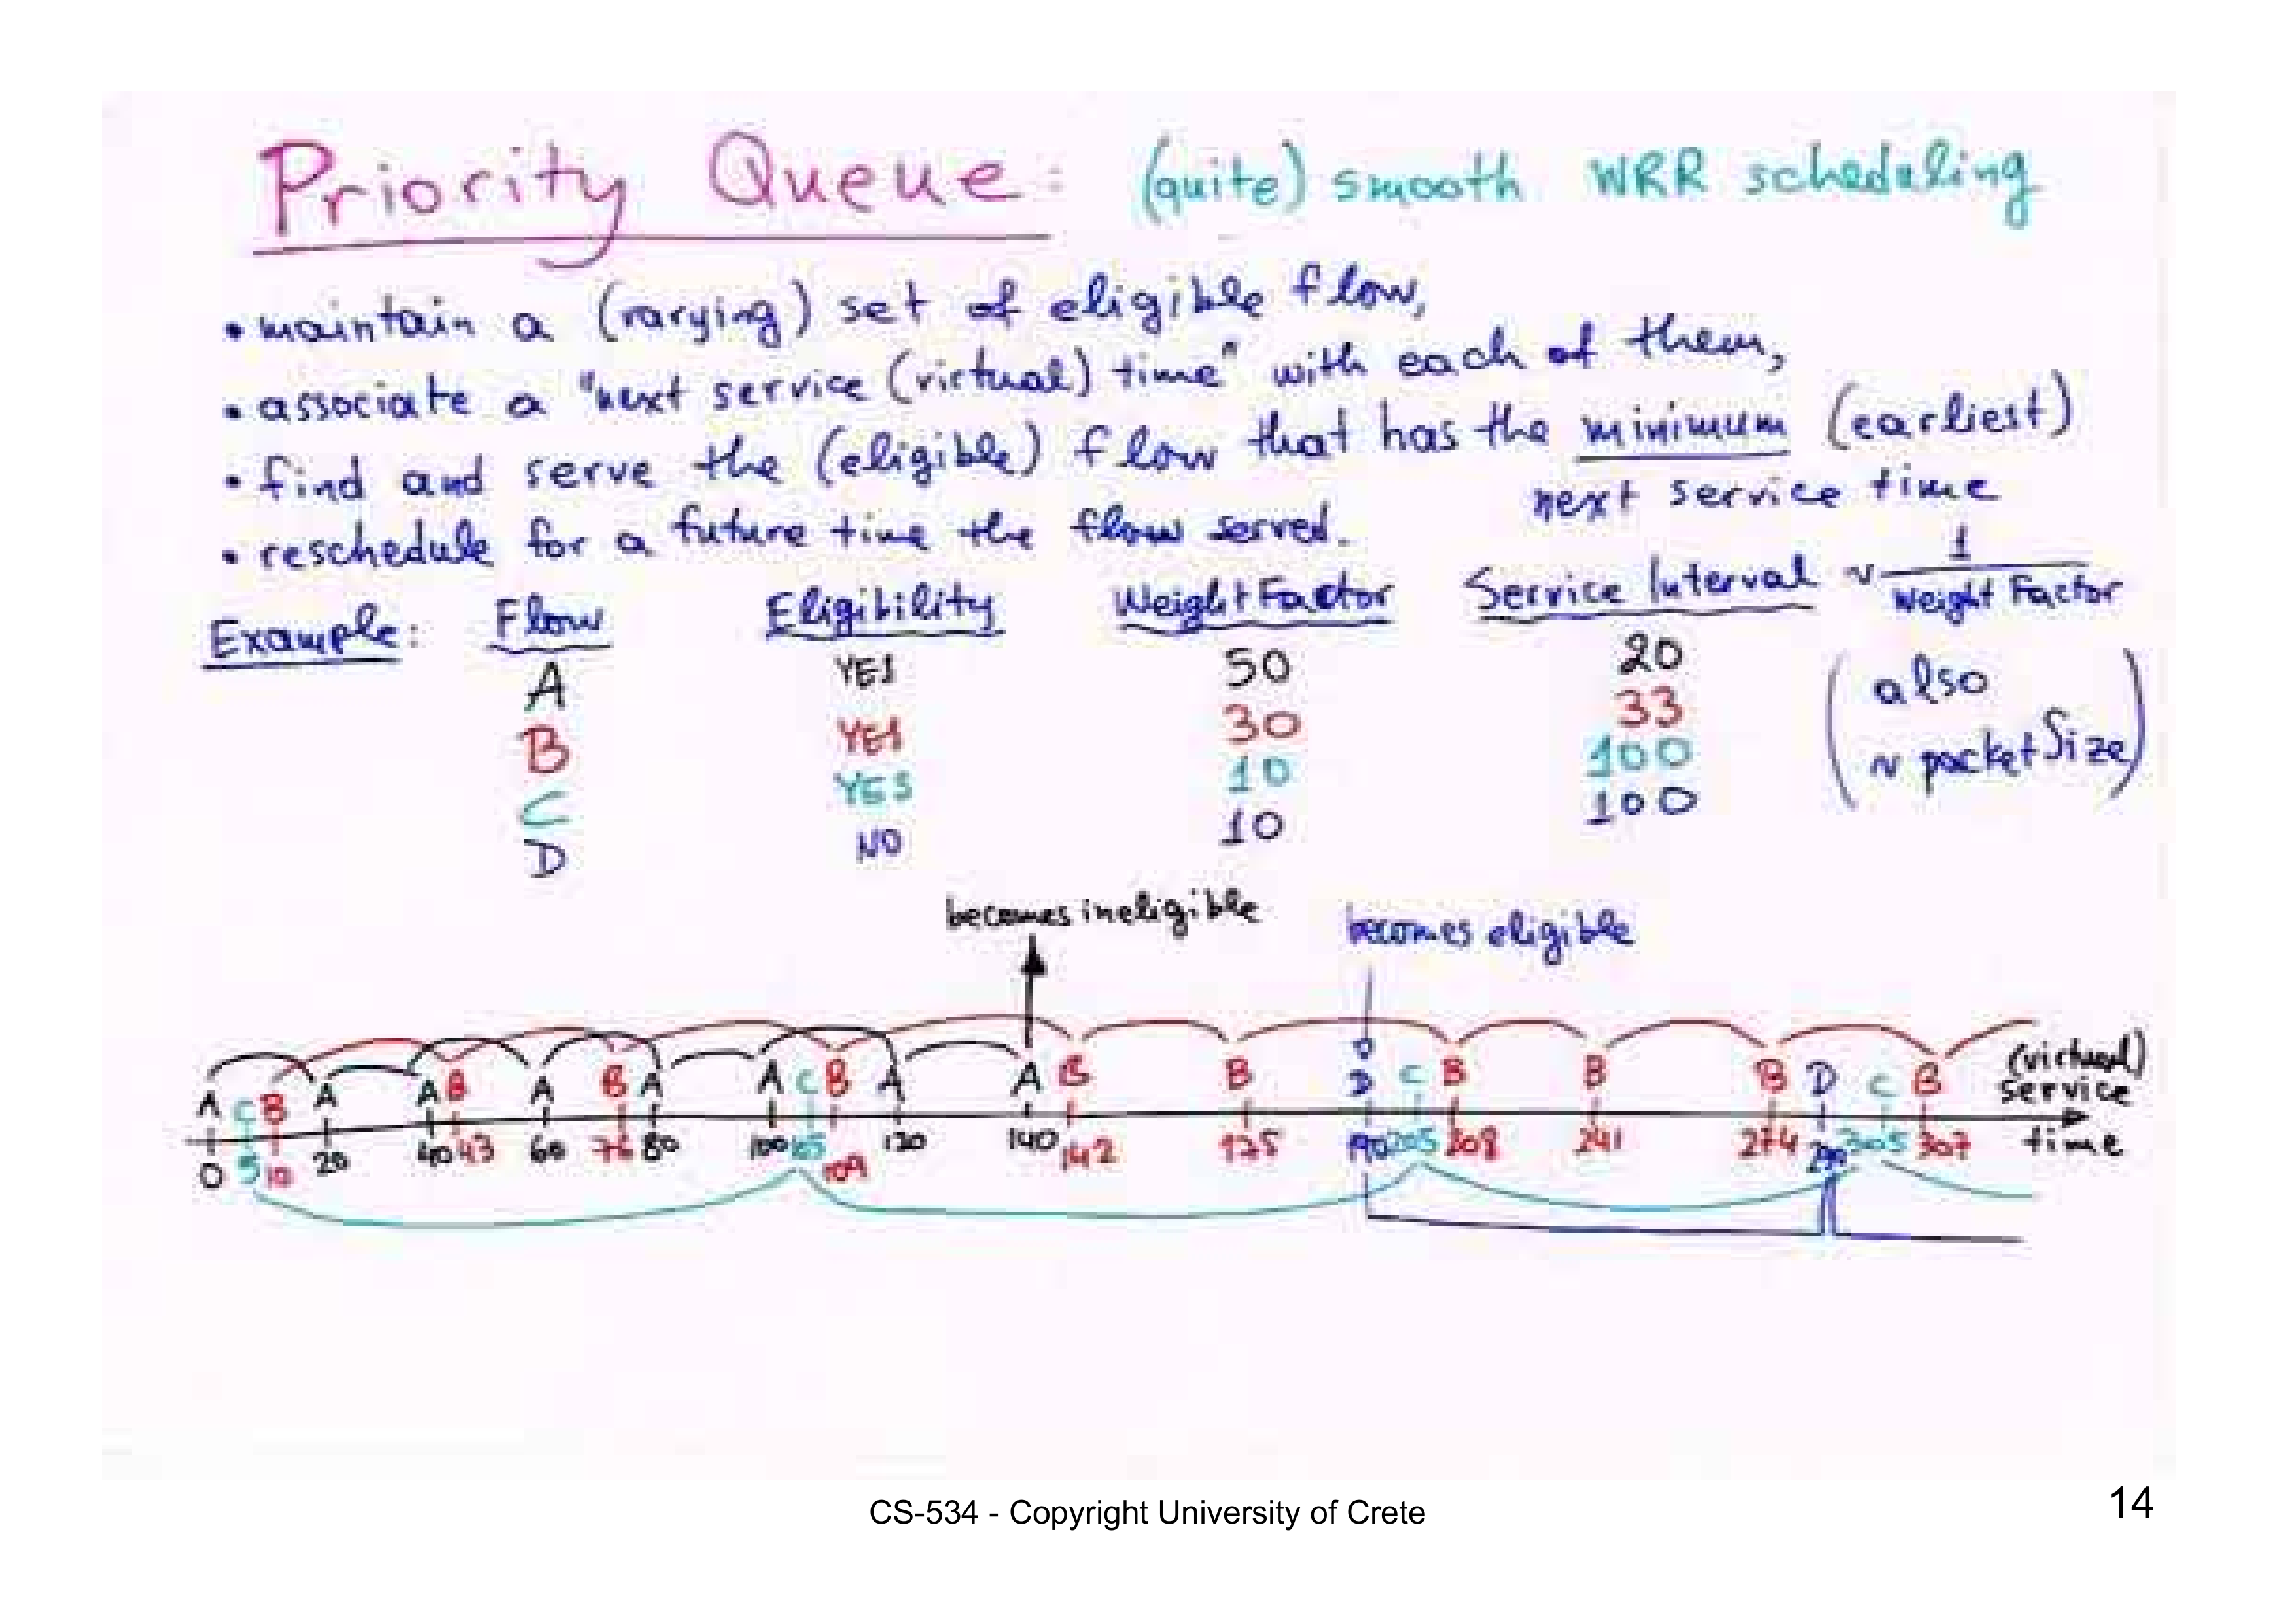 Priority Queue: (quite) smooth WRR scheduling
• maintain a (varying) set of eligible flow,
• associate a "next service (virtual) time" with each of them,
• find and serve the (eligible) flow that has the minimum (earliest)
next service time
• reschedule for a future time the flow served.
Example: Flow Eligibility Weight Factor Service Interval ~ 1 / Weight Factor
A YES 50 20
B YES 30 33
C YES 10 100
D NO 10 100
(also
~ packet Size)
becomes ineligible becomes eligible
A C B A A B A B A A C B A A B B D C B B B D C B (virtual)
service
time
0 5 10 20 40 43 60 76 80 100 105 109 120 140 142 175 190 205 208 241 274 290 305 307
CS-534 - Copyright University of Crete
14